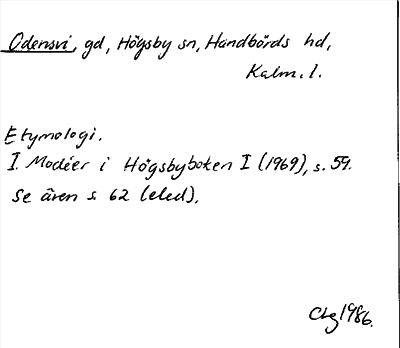 Odensvi, gd, Högsby sn, Handbörds hd,
Kalm. l.
Etymologi.
I. Modéer i Högsbyboken I (1969), s. 59.
Se även s. 62 (eled).
CLg 1986.